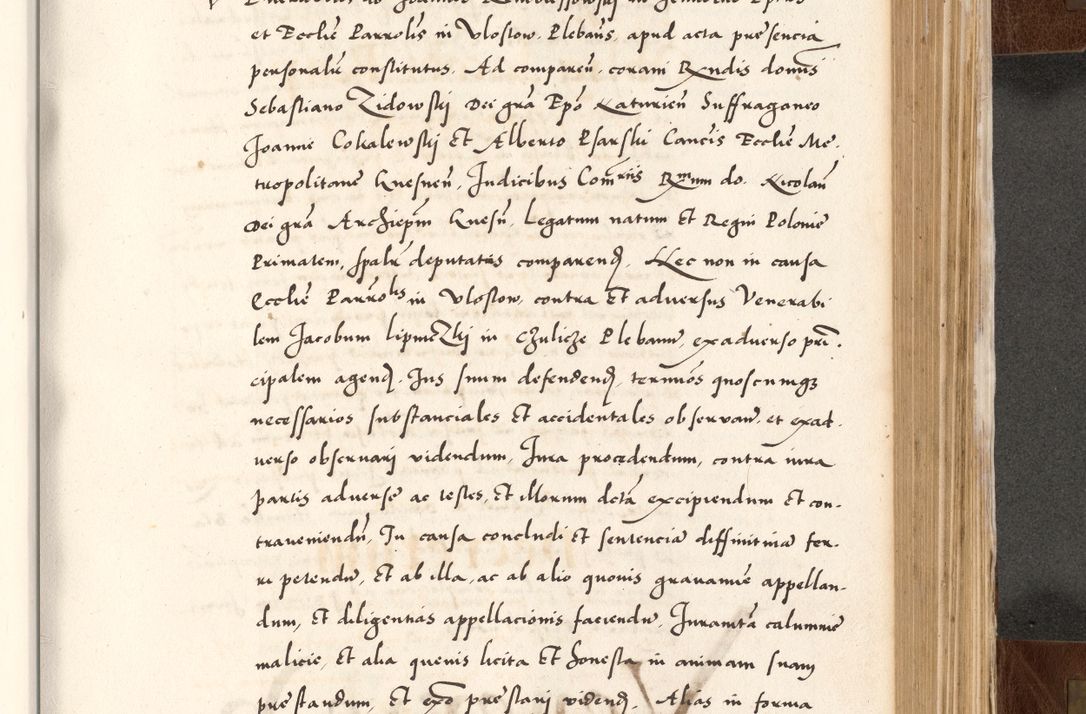 et Ecclie Parrolis in Vlostow. Plebans, apud acta presencia
personalr constitutus. Ad comparen. coram Rndis domis
Sebastiano Zidowskj Dei gra Epo Naturien Suffraganeo
Joanne Cokalewskj et Alberto Psarski Cancis Ecclie Me-
tropolitane Gnesnen. Judicibus Comriis Rmum do. Nicolau
Dei gra Archiepm Gnesn. Legatum natum et Regni Polonie
Primatem, spalr deputatis comparend. Nec non in causa
Ecclie Parrolis in Vlostow, contra et adversus Venerabi
lem Jacobum lipniczkj in Czulicze Plebanum, exadverso prin-
cipalem agend. Jus suum defendend, termios quoscumqz
necessarios substanciales et accidentales observand, et exad-
verso observari videndum, Jura procedendum, contra iura
partis adverse ac testes, et illorum dcta excipiendum et con-
traveniendu, In causa concludi et sentencia diffinitiva fer-
ri petendu, et ab illa, ac ab alio quovis gravamie appellan-
dum, et diligentias appellacionis faciendu, Juramta calumnie
malicie, et alia quevis licita et honesta in animam suam
prestandum, et exo prestari videnđ. Alias in forma